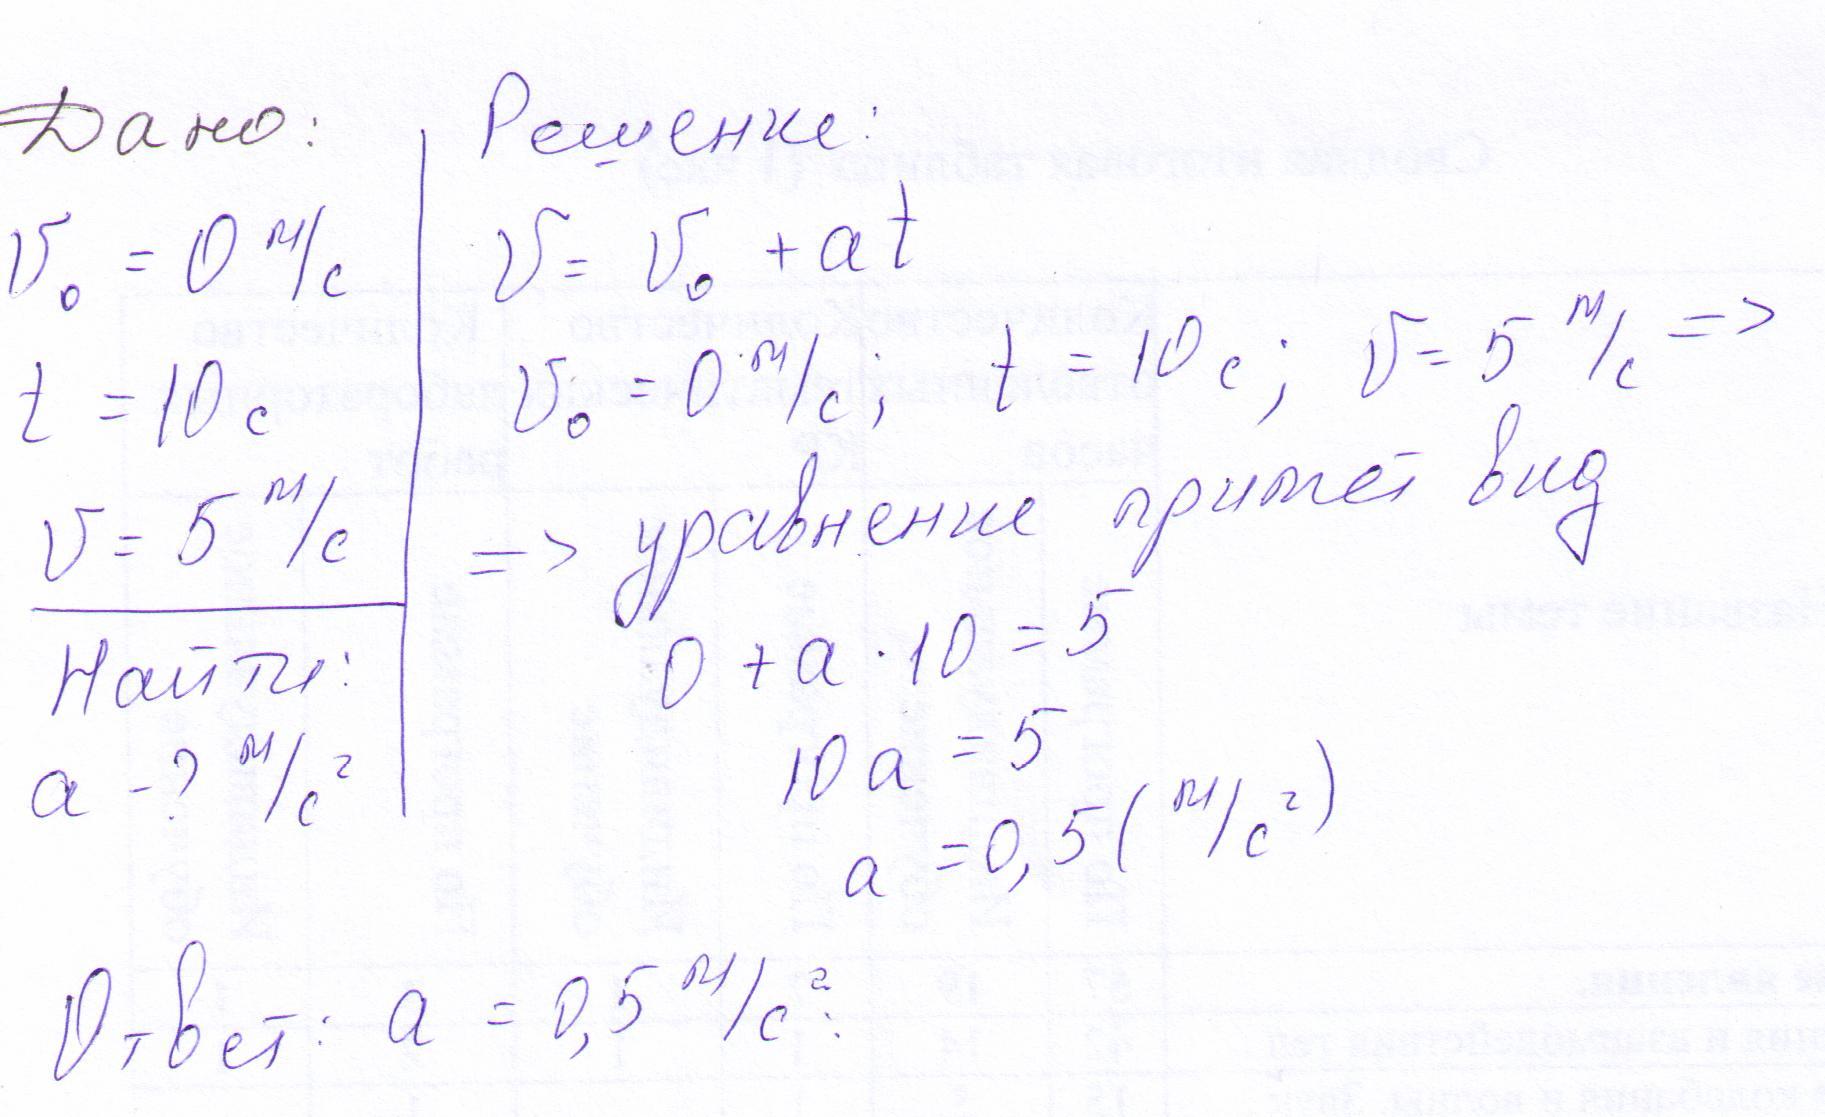 Дано:
V₀ = 0 м/с
t = 10 с
V = 5 м/с
Найти:
a - ? м/с²
Решение:
V = V₀ + at
V₀ = 0 м/с; t = 10 с; V = 5 м/с =>
=> уравнение примет вид
0 + a · 10 = 5
10a = 5
a = 0,5 (м/с²)
Ответ: a = 0,5 м/с².